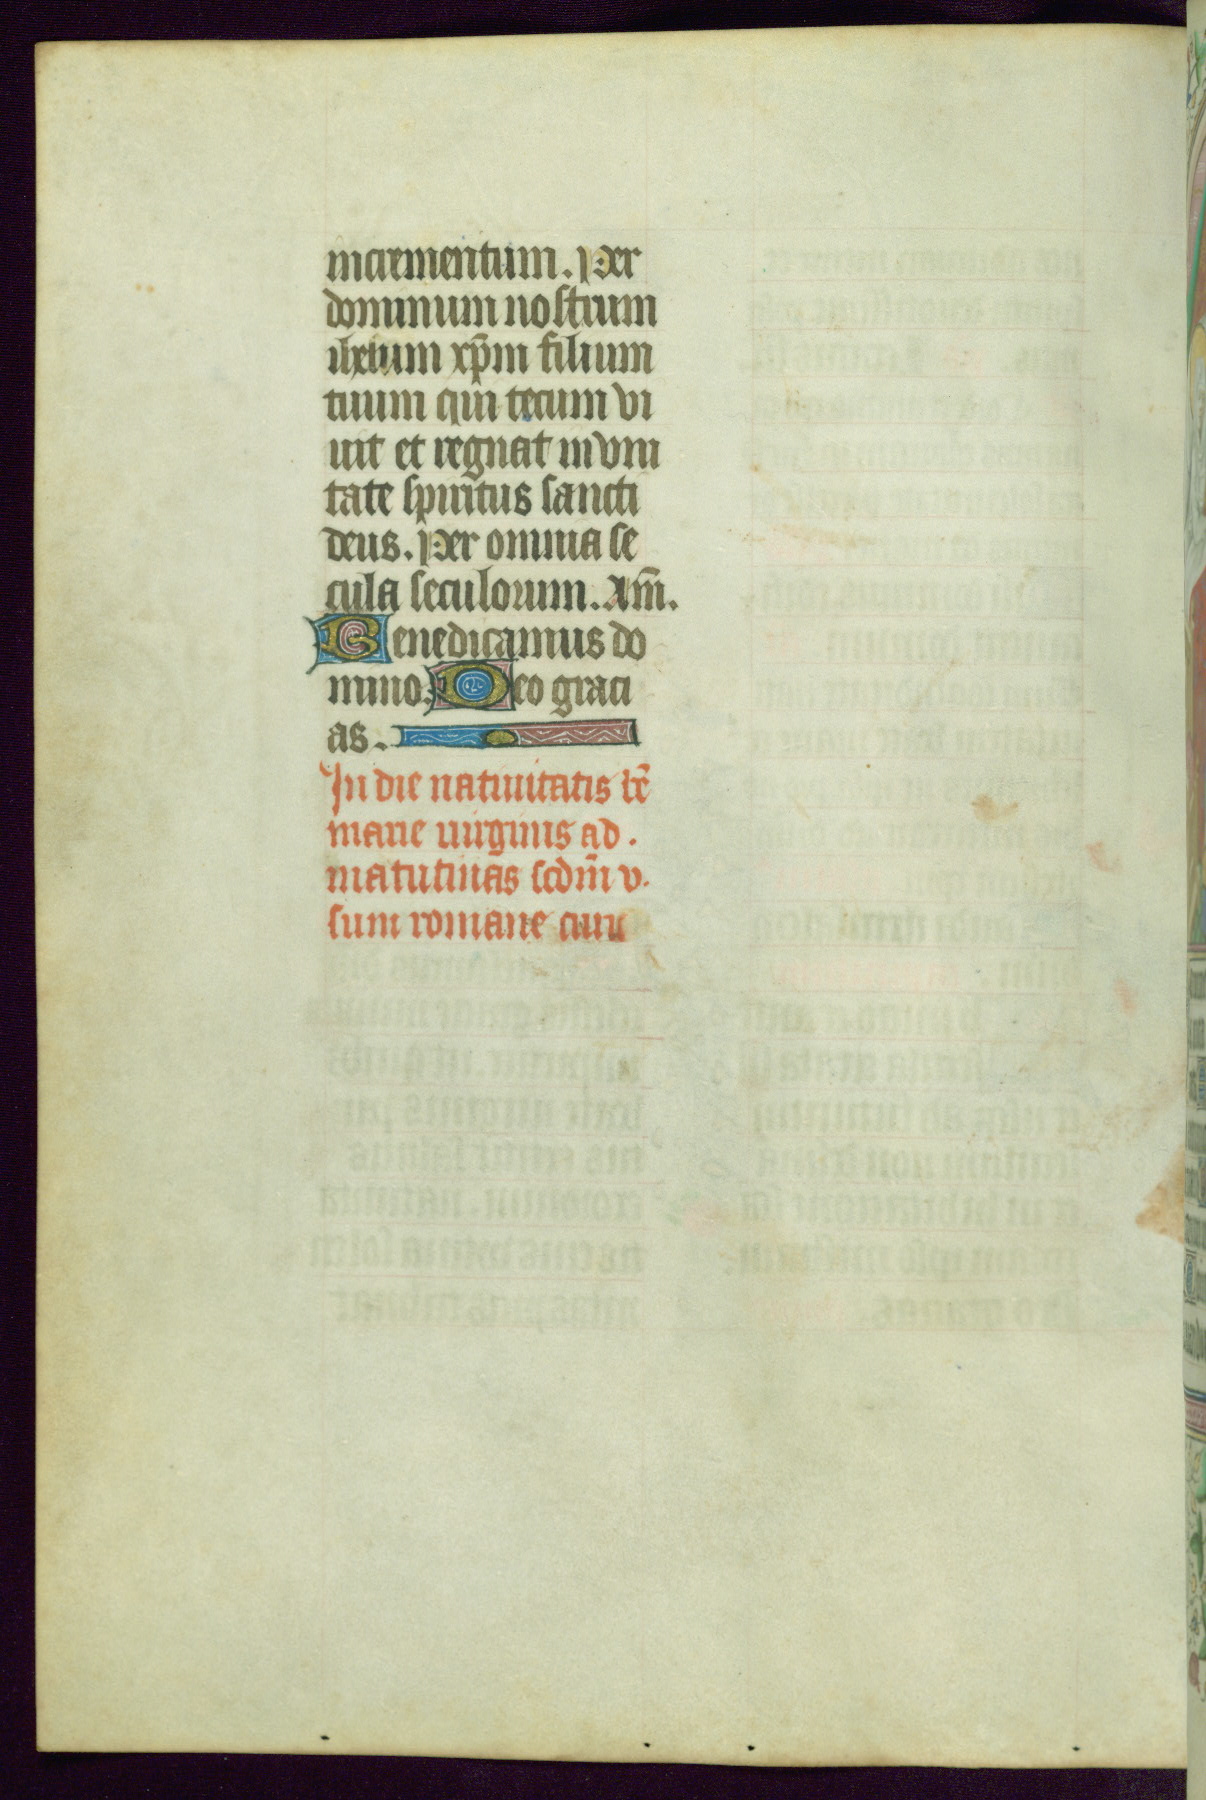 incrementum. Per
dominum nostrum
ihesum xp̄m filium
tuum qui tecum vi
uit et regnat in vni
tate spiritus sancti
deus. Per omnia se
cula seculorum. Am̄.
Benedicamus do
mino. Deo graci
as.
In die natiuitatis be͞
marie uirginis ad.
matutinas scdm̄ v.
sum romane curie